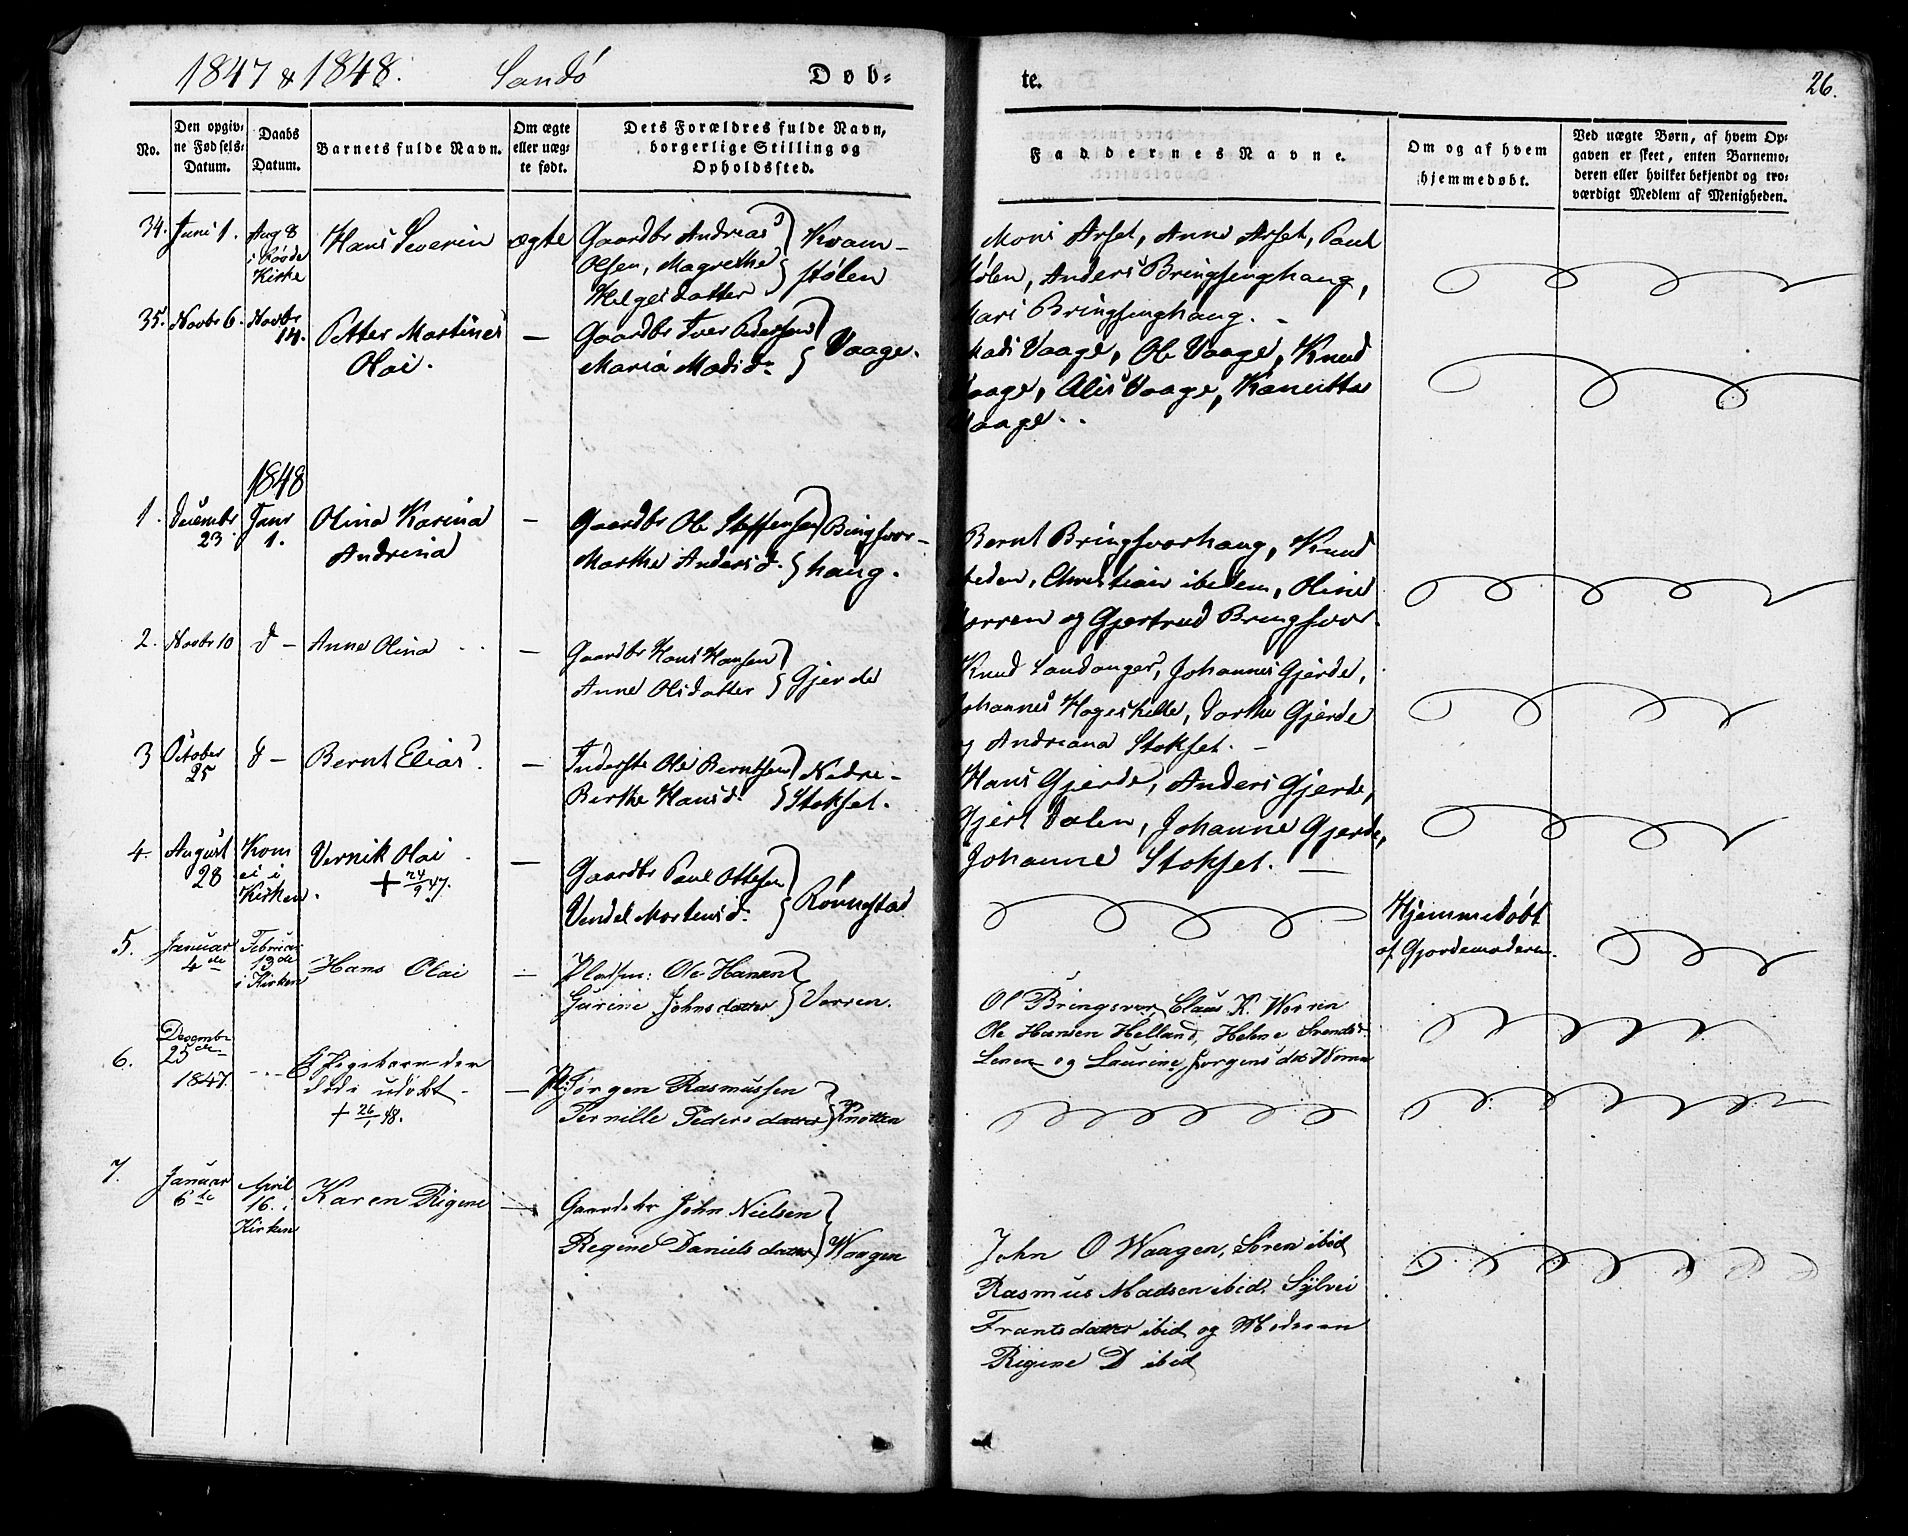 1847 & 1848. Sandø Døb-
te. 26.
No.
Den opgiv-
ne Fødsels-
Datum.
Daabs
Datum.
Barnets fulde Navn.
Om ægte
eller uæg-
te født.
Dets Forældres fulde Navn,
borgerlige Stilling og
Opholdssted.
Faddernes Navne.
Om og af hvem
hjemmedøbt.
Ved uægte Børn, af hvem Op-
gaven er skeet, enten Barnemo-
deren eller hvilket bekjendt og tro-
værdigt Medlem af Menigheden.
34. Juni 1. Aug 8 Hans Severin ægte Gaardbr Andreas Kvam-
i Kirke Olsen, Magrethe stølen
Helgesdatter
Moni Arset, Anne Arset, Paul
Anders Bringsinghaug,
Mari Bringsinghaug.
35. Novbr 6. Novbr Petter Martines — Gaardbr Iver Pedersen Vaage.
14. Olai. Maria Madsd.
Mads Vaage, Ole Vaage, Knud
Vaage, Vaage, Kanutta
Vaage.
1848
1. Decembr Janr Olina Karina — Gaardbr Ole Steffensen
23. 1. Andrina Marthe Andersd. haug.
Bernt Bringsvorhaug, Knud
ibeden, Christian ibedem, Oline
Vorren og Gjertrud Bringsvor.
2. Novbr 10 d — Anne Olina — Gaardbr Hans Hansen Gjerde
Anne Olsdatter
Knud Sandanger, Johannes Gjerde,
Johannes Dorthe Gjerde
og Andriana Stokset.
3 October d — Bernt Elias. — Inderste Ole Berntsen Nedre-
25 Berthe Hansd. Stokset.
Hans Gjerde, Anders Gjerde,
Gjert Dalen, Johanne Gjerde,
Johanne Stokset. —
4. August Kom Vernik Olai — Gaardbr Paul Ottesen Røvnestad
28 ei i + 24/9 47. Vendel Mortensd.
Kirken.
Hjemmedøbt
af Gjordemoderen.
5. Januar Februar Hans Olai — Pladsm: Ole Hansen Vorren.
4de 13de Gurine Johnsdatter
i Kirken
Ol Bringsvor, Claus K. Worren
Ole Hansen Helland, Helene
og Laurine Jørgensdtr Worren
6. Decembr Et Pigebarn der — Pl: Jørgen Rasmussen Knotten
25de døde udøbt Pernille Pedersdatter
1847. + 26/1 48.
7. Januar April Karen Rigine — Gaardbr John Nielsen Waagen
6te 16. i Regine Danielsdatter
Kirken
John O Waagen, Søren ibid
Rasmus Madsen ibid, Sylvei
Frantsdatter ibid og Moderen
Rigine D ibid